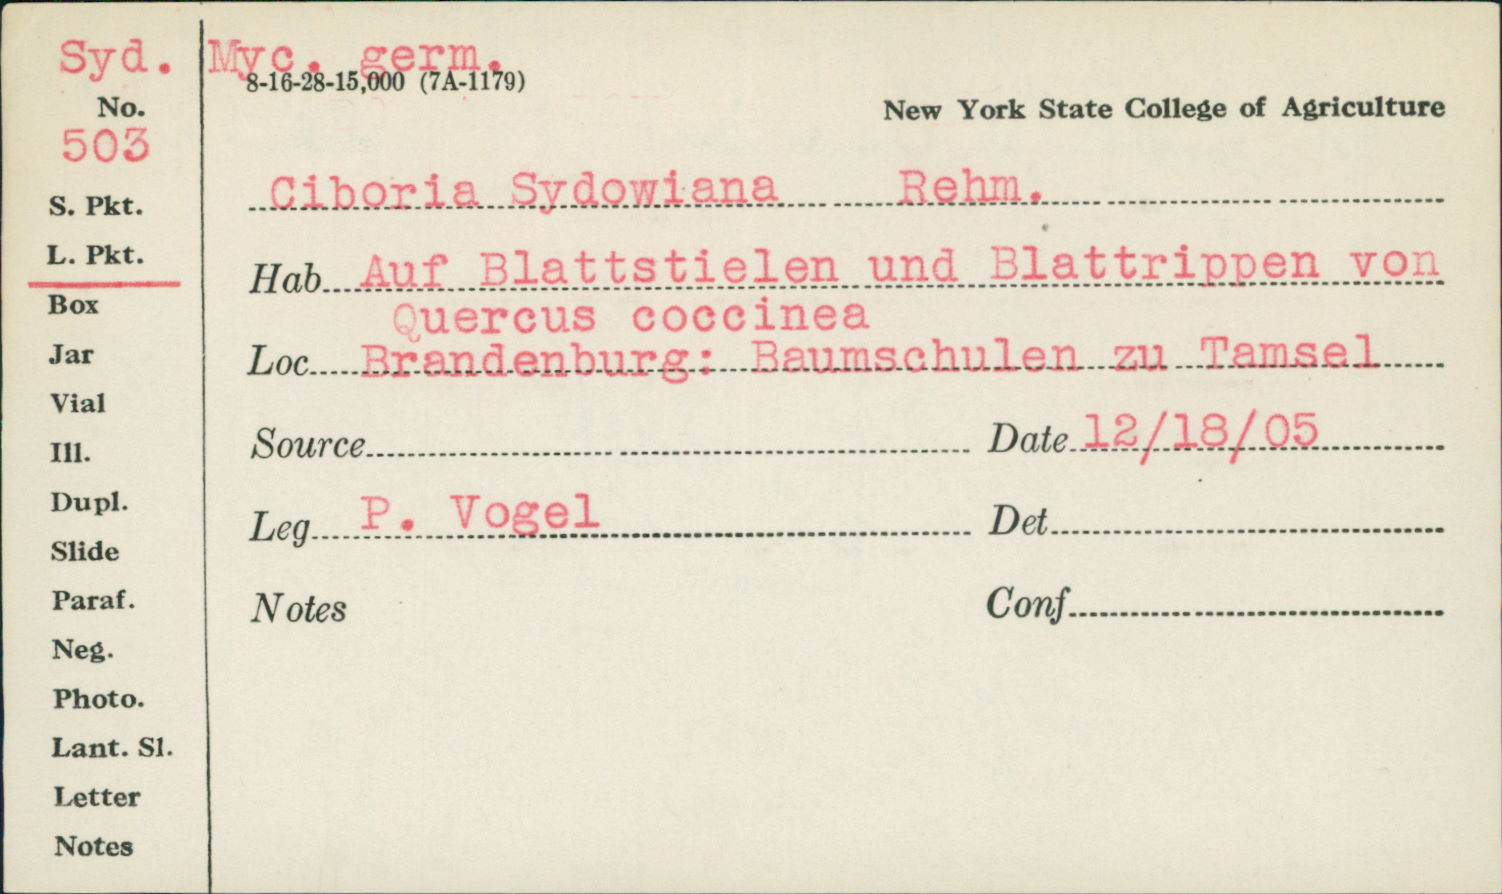 Syd. Myc. germ.
8-16-28-15,000 (7A-1179)
No.
New York State College of Agriculture
503
Ciboria Sydowiana Rehm.
S. Pkt.
L. Pkt.
Hab. Auf Blattstielen und Blattrippen von
Quercus coccinea
Box
Loc. Brandenburg: Baumschulen zu Tamsel
Jar
Vial
Source Date 12/18/05
Ill.
Dupl.
Leg. P. Vogel Det.
Slide
Paraf.
Notes Conf.
Neg.
Photo.
Lant. Sl.
Letter
Notes